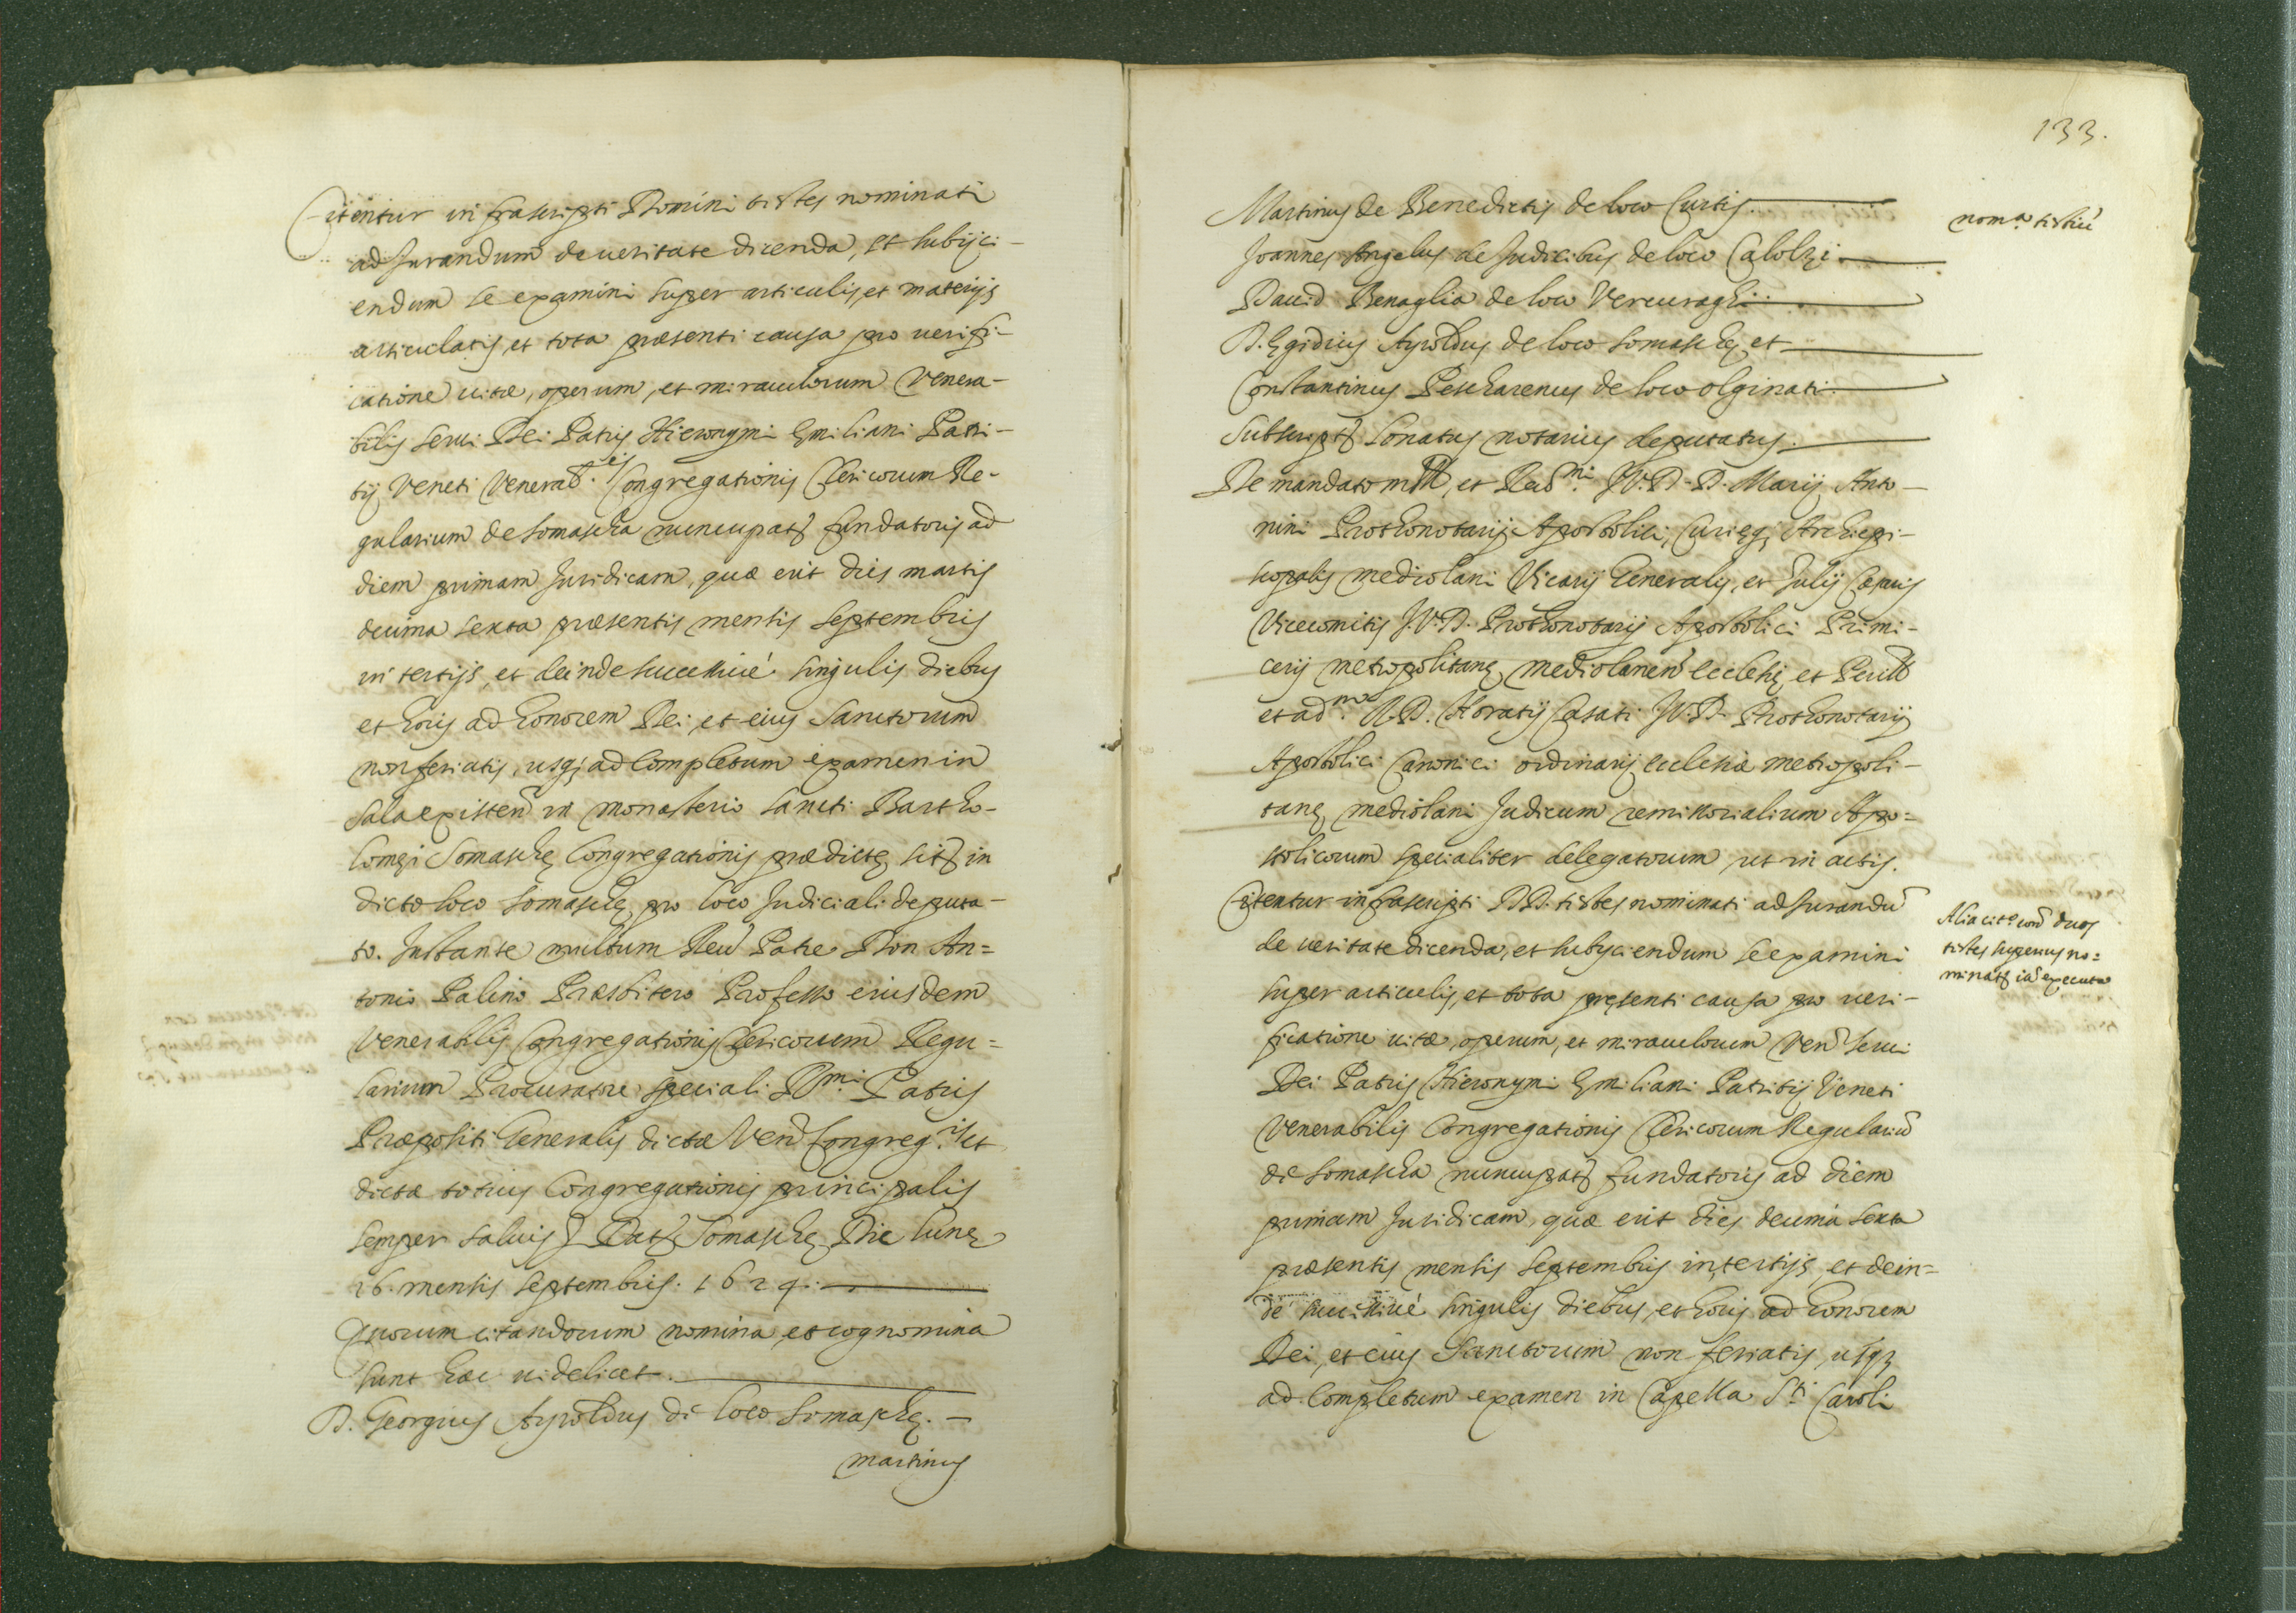 Citentur infrascripti Domini testes nominati
ad Jurandum de ueritate dicenda, et subijci-
endum se examini super articulis, et materijs
articulatis, et tota præsenti causa pro uerifi-
catione uitæ, operum, et miraculorum Venera-
bilis serui Dei Patris Hieronymi Emiliani Patri-
tij Veneti Venerab.is Congregationis Clericorum Re-
gularium de Somascha nuncupat. fundatoris ad
diem primam Juridicam, quæ erit dies martis
decima sexta præsentis mensis Septembris
in tertijs, et deinde successiué singulis diebus
et horis ad honorem Dei, et eius Sanctorum
non feriatis, usq; ad completum examen in
sala existen. in monasterio Sancti Bartho-
lomei Somaschę Congregationis prædictę sit. in
dicto loco Somaschę pro loco Judiciali deputa-
to. Instante multum Reu. Patre Don An=
tonio Palino Præsbitero Professo eiusdem
Venerabilis Congregationis Clericorum Regu=
larium Procuratore speciali R.mi Patris
Præpositi Generalis dictæ Ven. Congreg.is et
dictæ totius Congregationis principalis
semper saluis Dat. Somaschę Die Lunę
16. mensis Septembris. 1624.
Quorum citandorum nomina, et cognomina
sunt hæc uidelicet.
D. Georgius Ayroldus de loco Somaschę. -
Martinus
133.
Martinus de Benedictis de loco Curtis.
nom.a testiū
Joannes Angelus de Judicibus de loco Calolzi.
Dauid Benaglia de loco Vercuraghi.
D. Egidius Ayroldus de loco Somaschę, et
Constantinus Pescharenus de loco Olginati.
Subscript. Sonatus notarius deputatus.
De mandato m. Ill, et Reu.mi J.V.D. D. Marij Anto-
nini Prothonotarij Apostolici, Curięq; Archiepi-
scopalis Mediolani Vicarij Generalis, et Julij Cæsaris
Vicecomitis J.V.D. Prothonotarij Apostolici Primi-
cerij metropolitanę Mediolanen. ecclesię, et Perill.
et ad.m R.D. Horatij Casati J.V.D. Prothonotarij
Apostolici Canonici ordinarij ecclesiæ metropoli-
tanę Mediolani Judicum remissorialium Apo=
stolicorum specialiter delegatorum, ut in actis.
Citentur infrascripti DD. testes nominati ad Jurandū
de ueritate dicenda, et subijciendum se examini
super articulis, et tota pręsenti causa pro ueri-
ficatione uitæ, operum, et miraculorum Ven. serui
Dei Patris Hieronymi Emiliani Patritij Veneti
Venerabilis Congregationis Clericorum Regulariū
de Somascha nuncupat. fundatoris ad diem
primam Juridicam, quæ erit dies decima sexta
præsentis mensis Septembris in tertijs, et dein=
de successiué singulis diebus, et horis ad honorem
Dei, et eius Sanctorum non feriatis, usq;
ad completum examen in Capella S.ti Caroli
Alia cit.o con. duos
testes superius no=
minat. iā executa